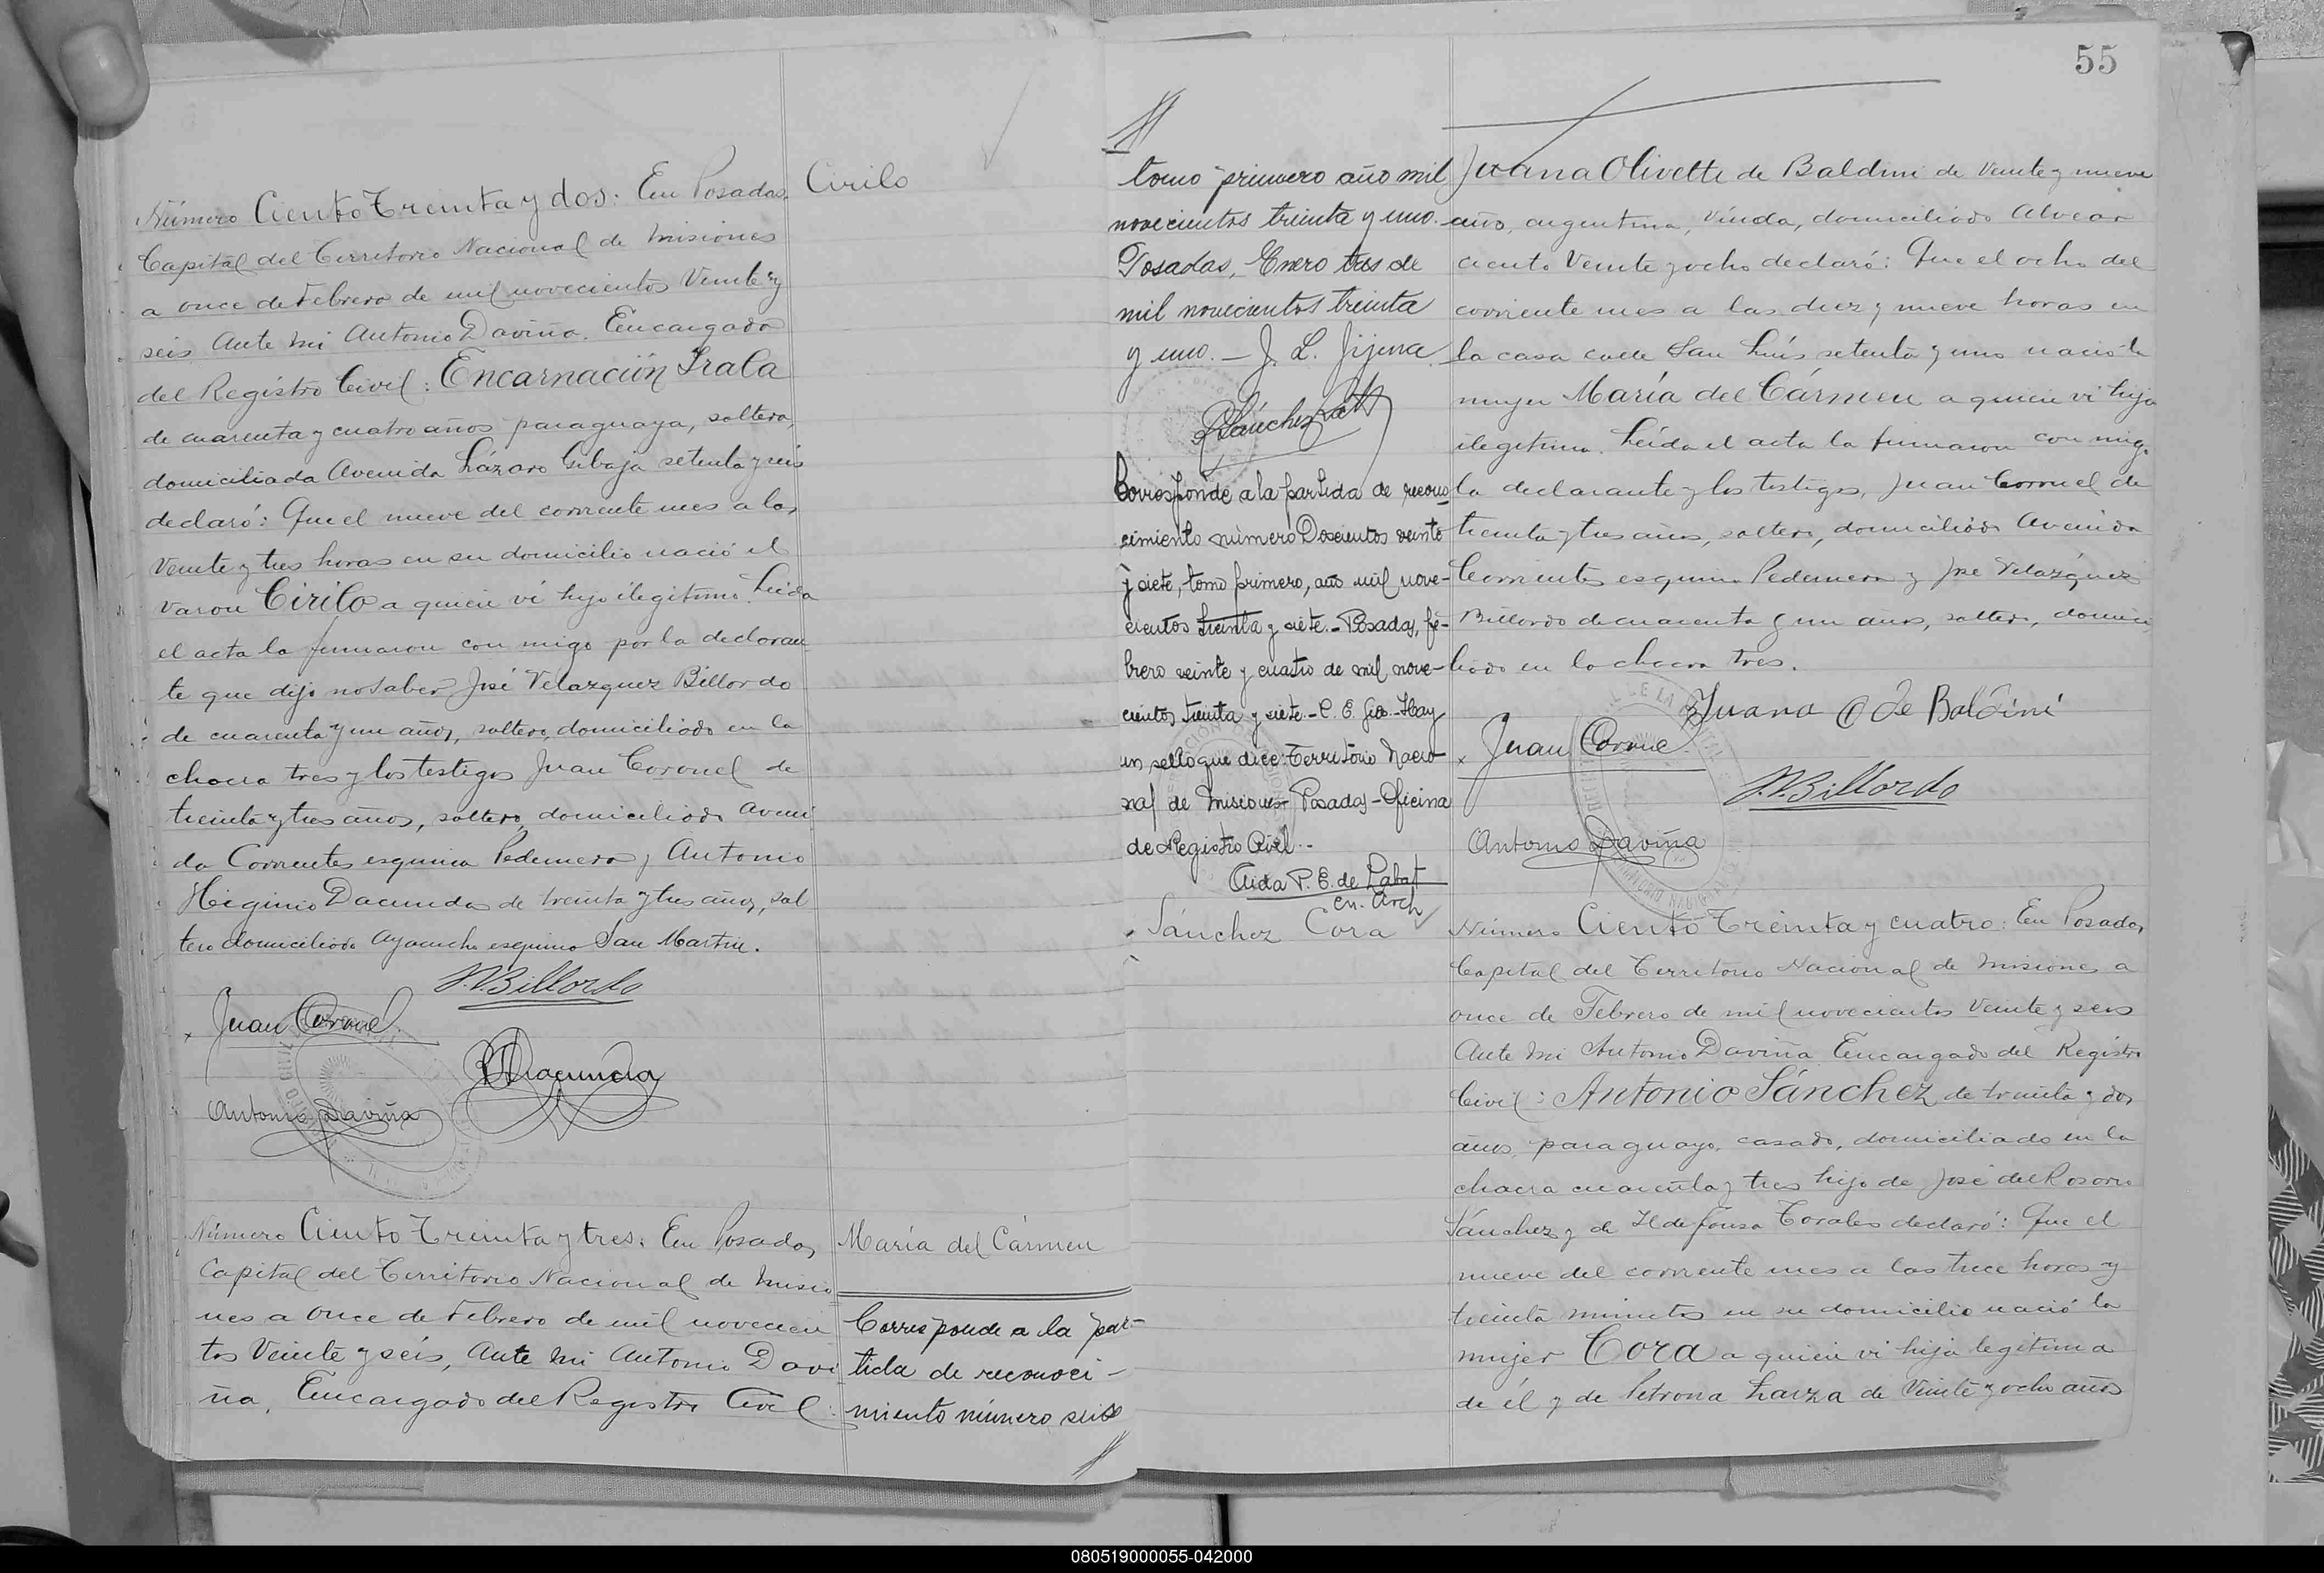 Número Ciento Treinta y dos. En Posadas,
Capital del Territorio Nacional de Misiones
a once de Febrero de mil novecientos Veinte y
seis Ante mi Antonio Daviña, Encargado
del Registro Civil: Encarnación Irala
de cuarenta y cuatro años paraguaya, soltera,
domiciliada Avenida Lázaro Gibaja setenta y seis
declaró: Que el nueve del corriente mes a las
Veinte y tres horas en su domicilio nació el
varon Cirilo a quien vi hijo ilegitimo. Leida
el acta la firmaron con migo por la declaran
te que dijo no saber José Velazquez Billordo
de cuarenta y un años, soltero, domiciliado en la
chacra tres y los testigos Juan Coronel de
treinta y tres años, soltero, domiciliado Aveni
da Corrientes esquina Pedernera y Antonio
Higinio Dacunda de treinta y tres años, sol
tero domiciliado Ayacucho esquina San Martin.
J.V.Billordo
Juan Coronel
Antonio Daviña
Cirilo
Número Ciento Treinta y tres. En Posadas,
Capital del Territorio Nacional de Misio
nes a once de Febrero de mil novecien
tos Veinte y seis, Ante mi Antonio Davi
ña, Encargado del Registro Civil:
María del Cármen
Corresponde a la par-
tida de reconoci-
miento número seis
//
55
//
tomo primero año mil
novecientos treinta y uno.
Posadas, Enero tres de
mil novecientos treinta
y uno. —
Corresponde a la partida de recono
cimiento número Doscientos veinte
y siete, tomo primero, año mil nove-
cientos treinta y siete.- Posadas, fe-
brero veinte y cuatro de mil nove-
cientos treinta y siete.- Hay
un sello que dice: Territorio Nacio-
nal de Misiones- Posadas - Oficina
de Registro Civil.-
Aida P. E. de Labat
en. Arch
Sánchez Cora
Juana Olivetti de Baldini de Veinte y nueve
años, argentina, viuda, domiciliado Alvear
ciento Veinte y ocho declaró: Que el ocho del
corriente mes a las diez y nueve horas en
la casa calle San Luís setenta y uno nació la
mujer María del Cármen a quien vi hija
ilegitima. Leída el acta la firmaron con migo
la declarante y los testigos, Juan Coronel de
treinta y tres años, soltero, domiciliado Avenida
Corrientes esquina Pedernera y José Velázquez
Billordo de cuarenta y un años, soltero, domici
liado en la chacra tres.
Juana O de Baldini
Juan Coronel
J.V.Billordo
Antonio Daviña
Número Ciento Treinta y cuatro: En Posadas,
Capital del Territorio Nacional de Misiones a
once de Febrero de mil novecientos Veinte y seis
Ante mi Antonio Daviña Encargado del Registro
Civil: Antonio Sánchez de treinta y dos
años, paraguayo, casado, domiciliado en la
chacra cuarenta y tres hijo de José del Rosario
Sánchez y de Ildefonsa Torales declaró: Que el
nueve del corriente mes a las trece horas y
treinta minutos en su domicilio nació la
mujer Cora a quien vi hija legitima
de él y de Petrona Larza de Veinte y ocho años
080519000055-042000